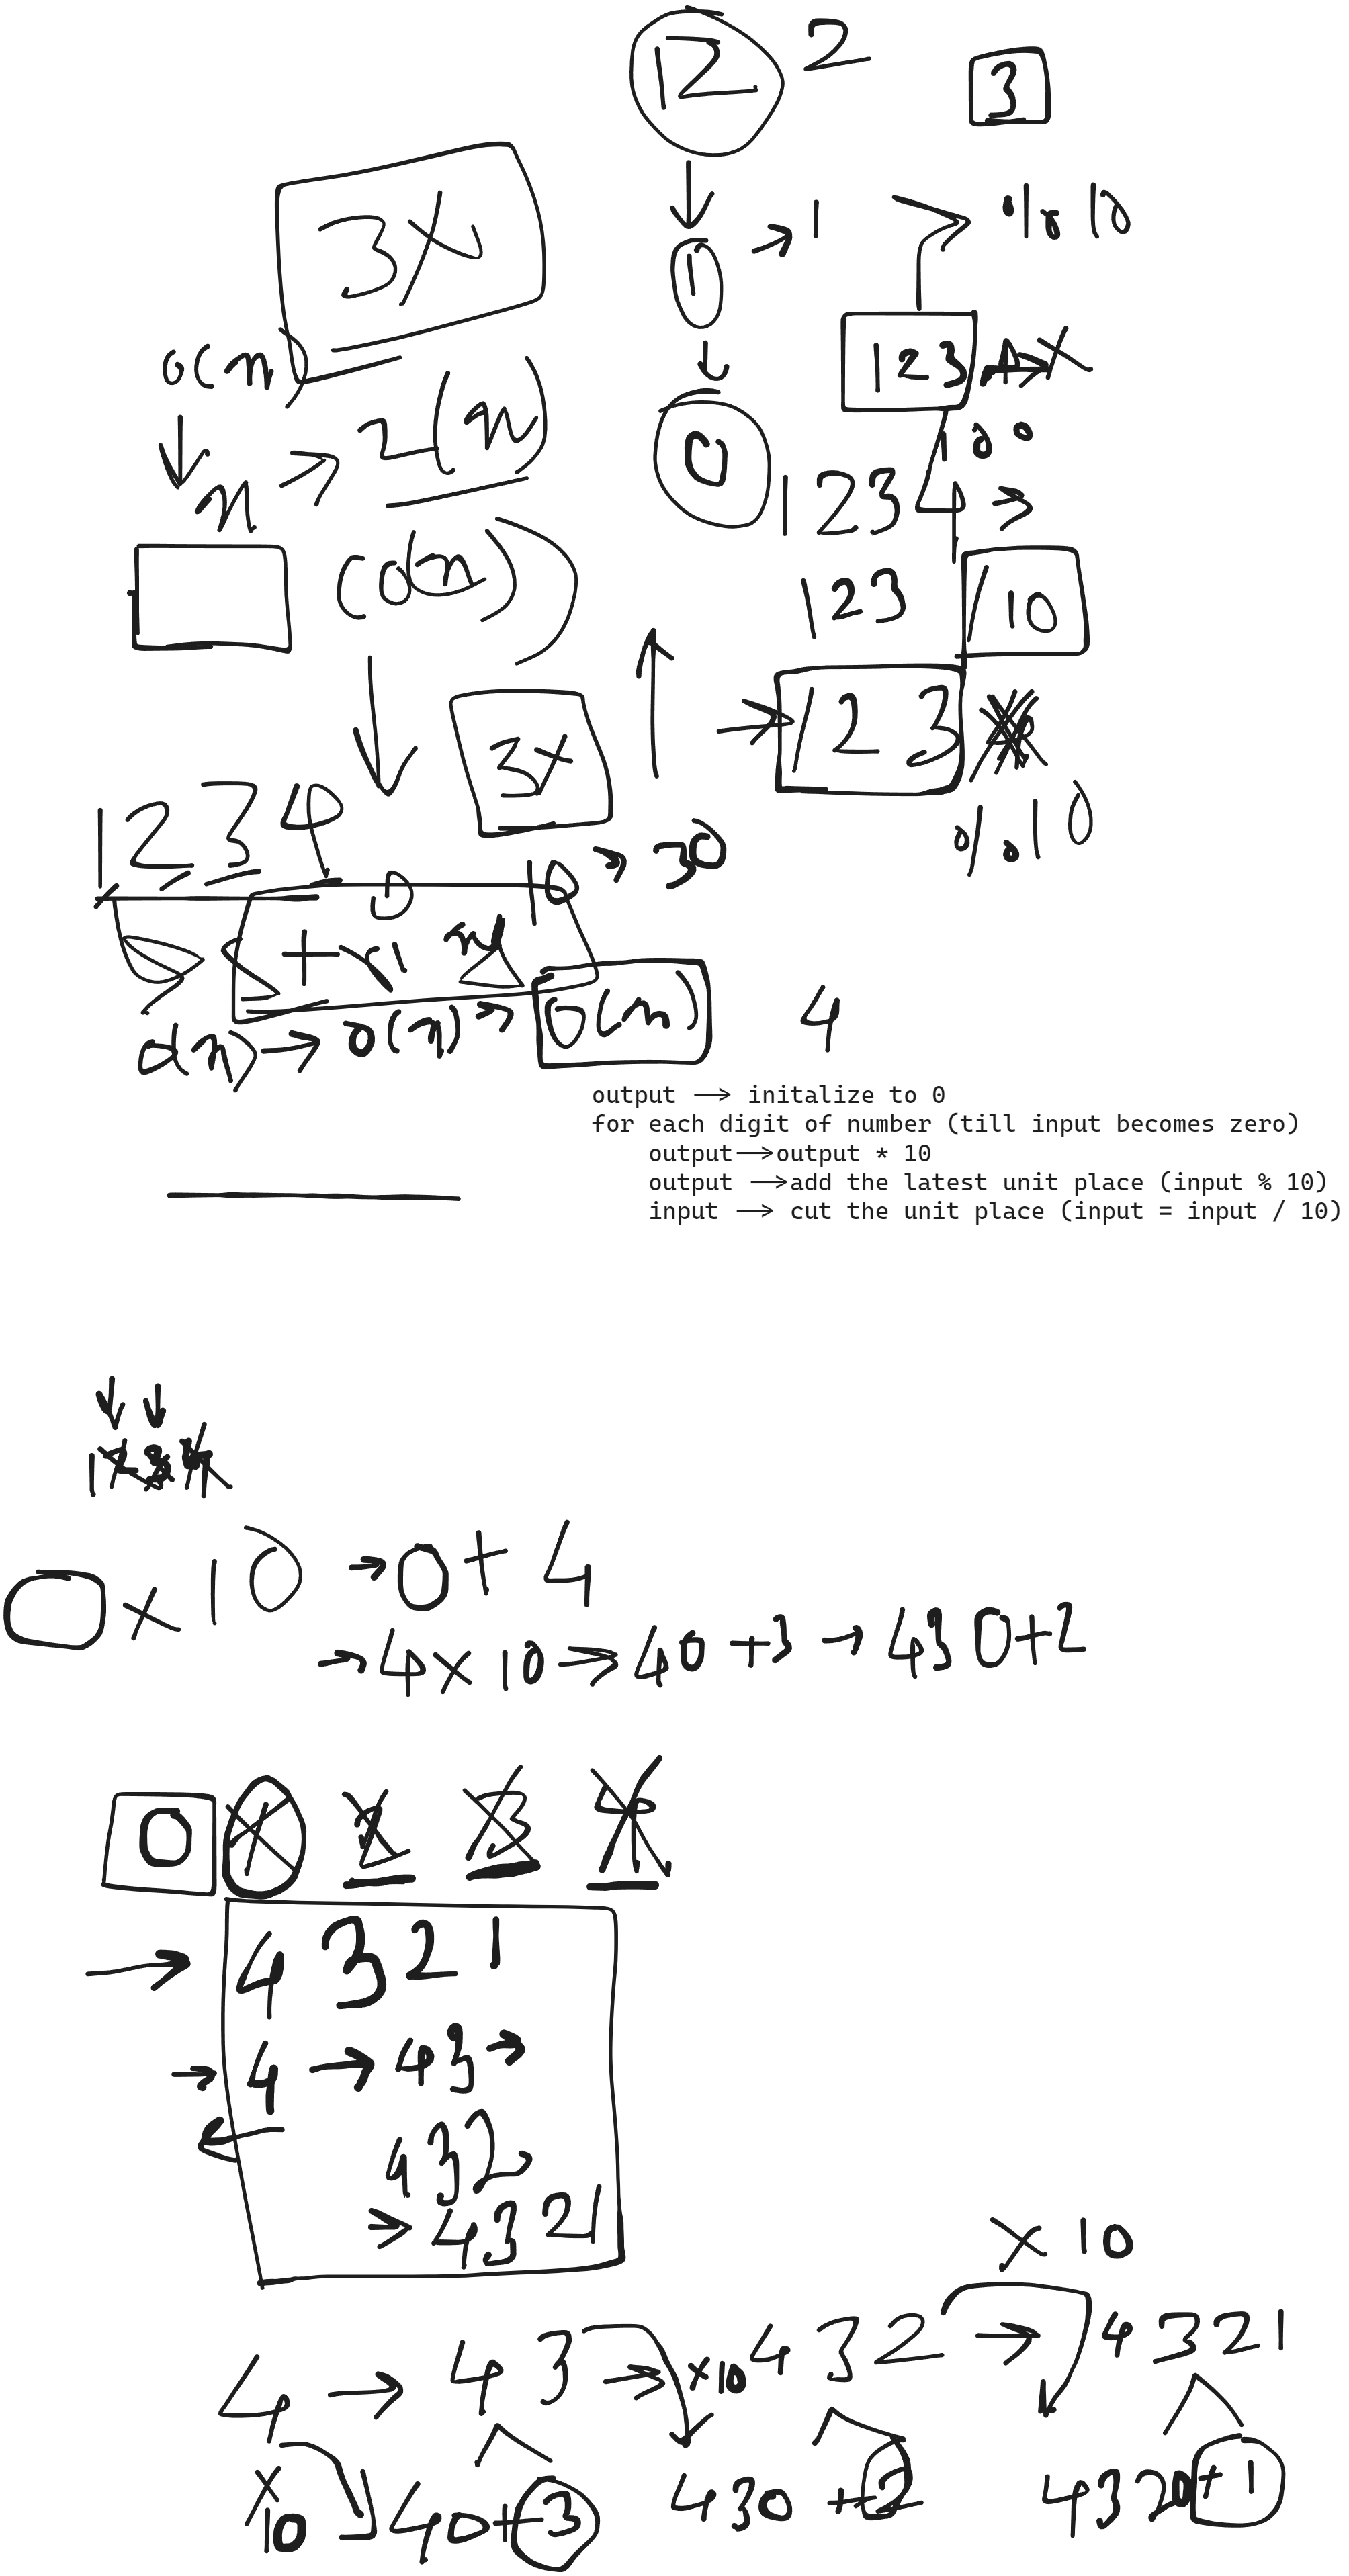 12 2
3
3x
1
→ 1
% 10
o(n)
123 4
n → 2(n)
0
100
1234 →
(o(n))
123 / 10
3x
→ 123
% 10
1234
10 → 30
o(n) → o(n) → o(n)
4
output → initalize to 0
for each digit of number (till input becomes zero)
output→output * 10
output →add the latest unit place (input % 10)
input → cut the unit place (input = input / 10)
1234
0 x 10 → 0 + 4
→ 4 x 10 → 40 + 3 → 430+2
0 1 2 3 4
→ 4 3 2 1
→ 4 → 43 →
432
→ 4321
x 10
4 → 43 → x10 432 → 4321
x 10 40+3 430 +2 4320+ 1